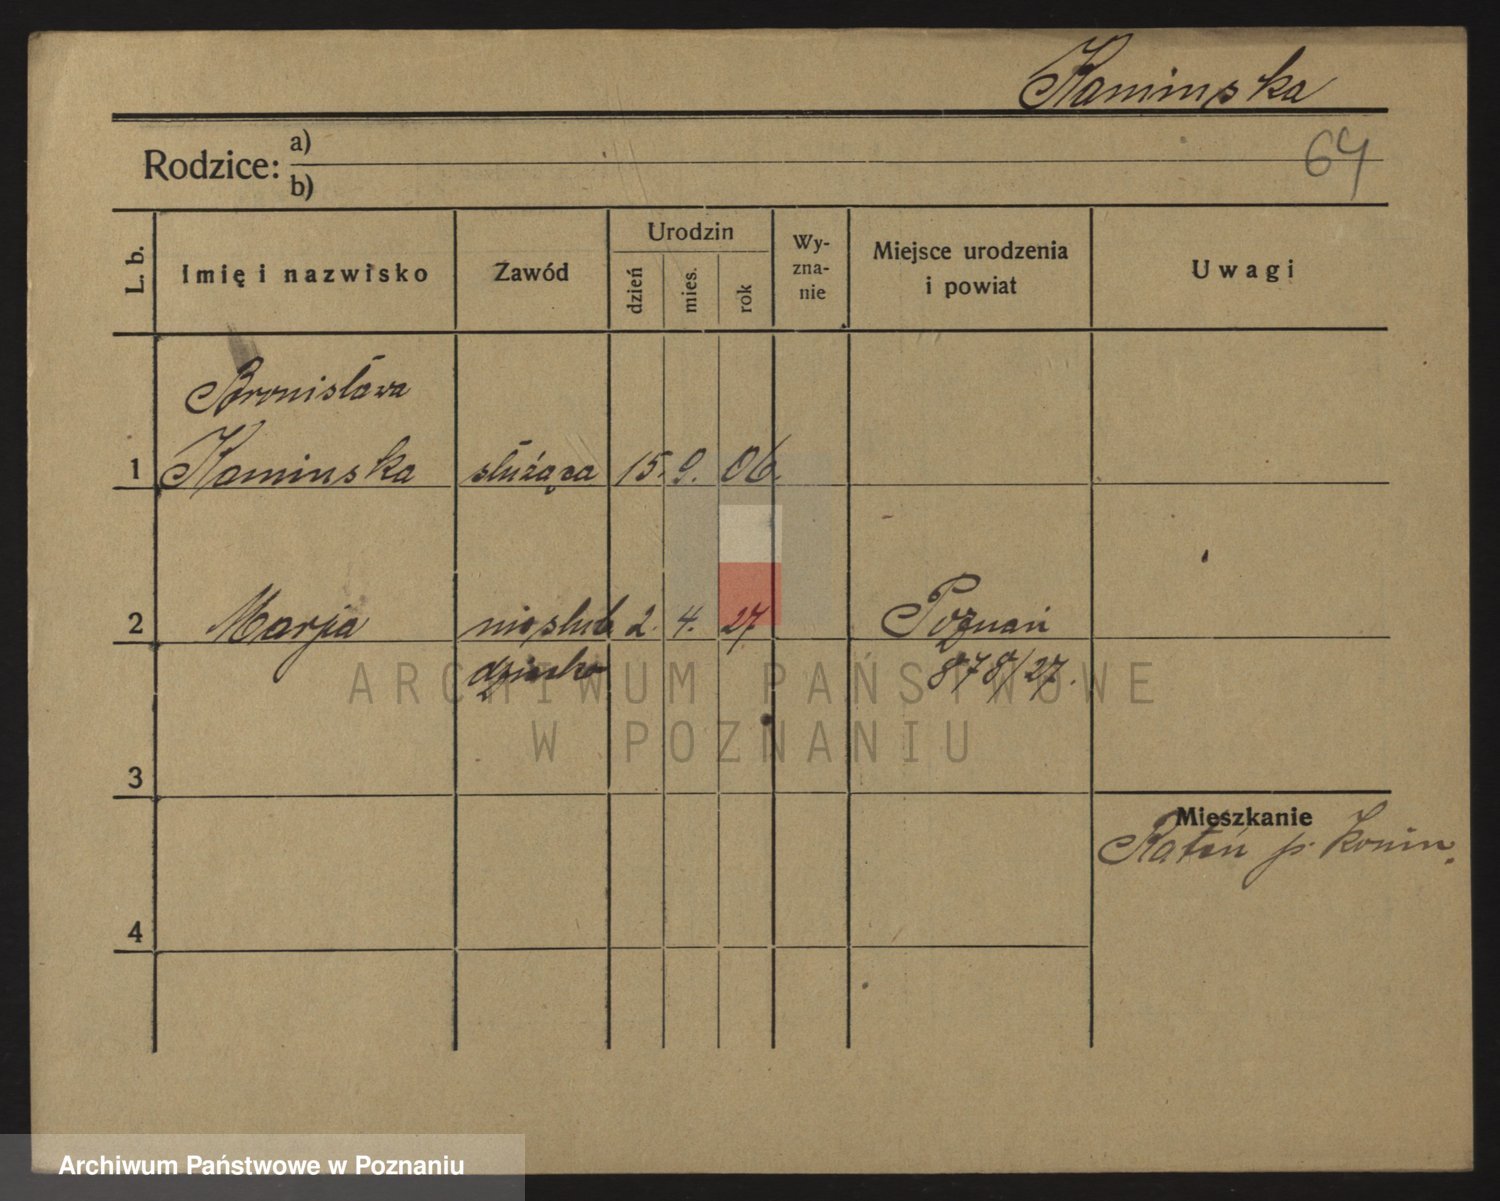 Kaminska
Rodzice: a)
b)
64
L. b.
Imię i nazwisko
Zawód
Urodzin
dzień
mies.
rok
Wy-
zna-
nie
Miejsce urodzenia
i powiat
Uwagi
Bronisława
1 Kaminska służąca 15. 9. 06.
2 Marja nieślub 2. 4. 27 Poznań
dziecko 878/27.
ARCHIWUM PAŃSTWOWE
W POZNANIU
3
Mieszkanie
Ratyń p. Konin.
4
Archiwum Państwowe w Poznaniu